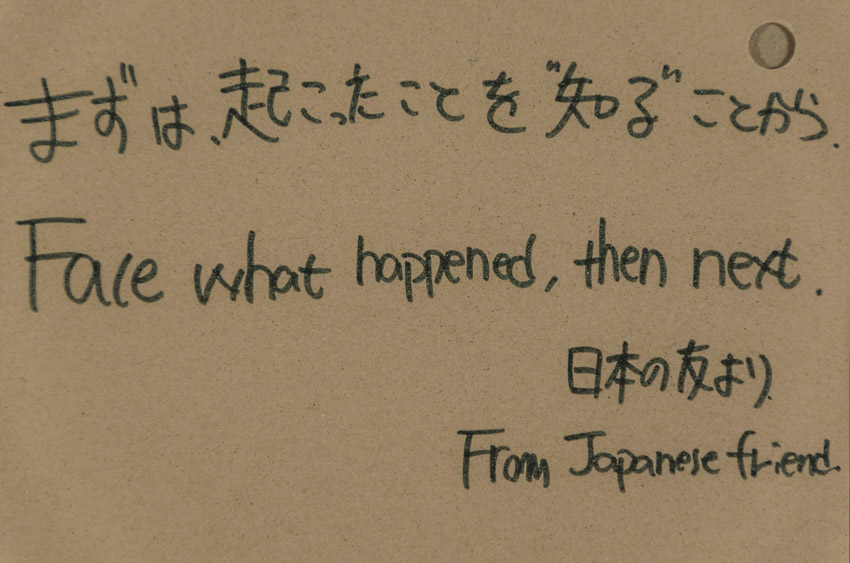 まずは、起こったことを"知る"ことから.
Face what happened, then next.
日本の友より
From Japanese friend.